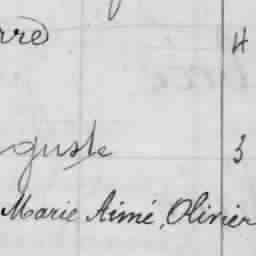 rre 4
guste 3
Marie Aimé, Olivier